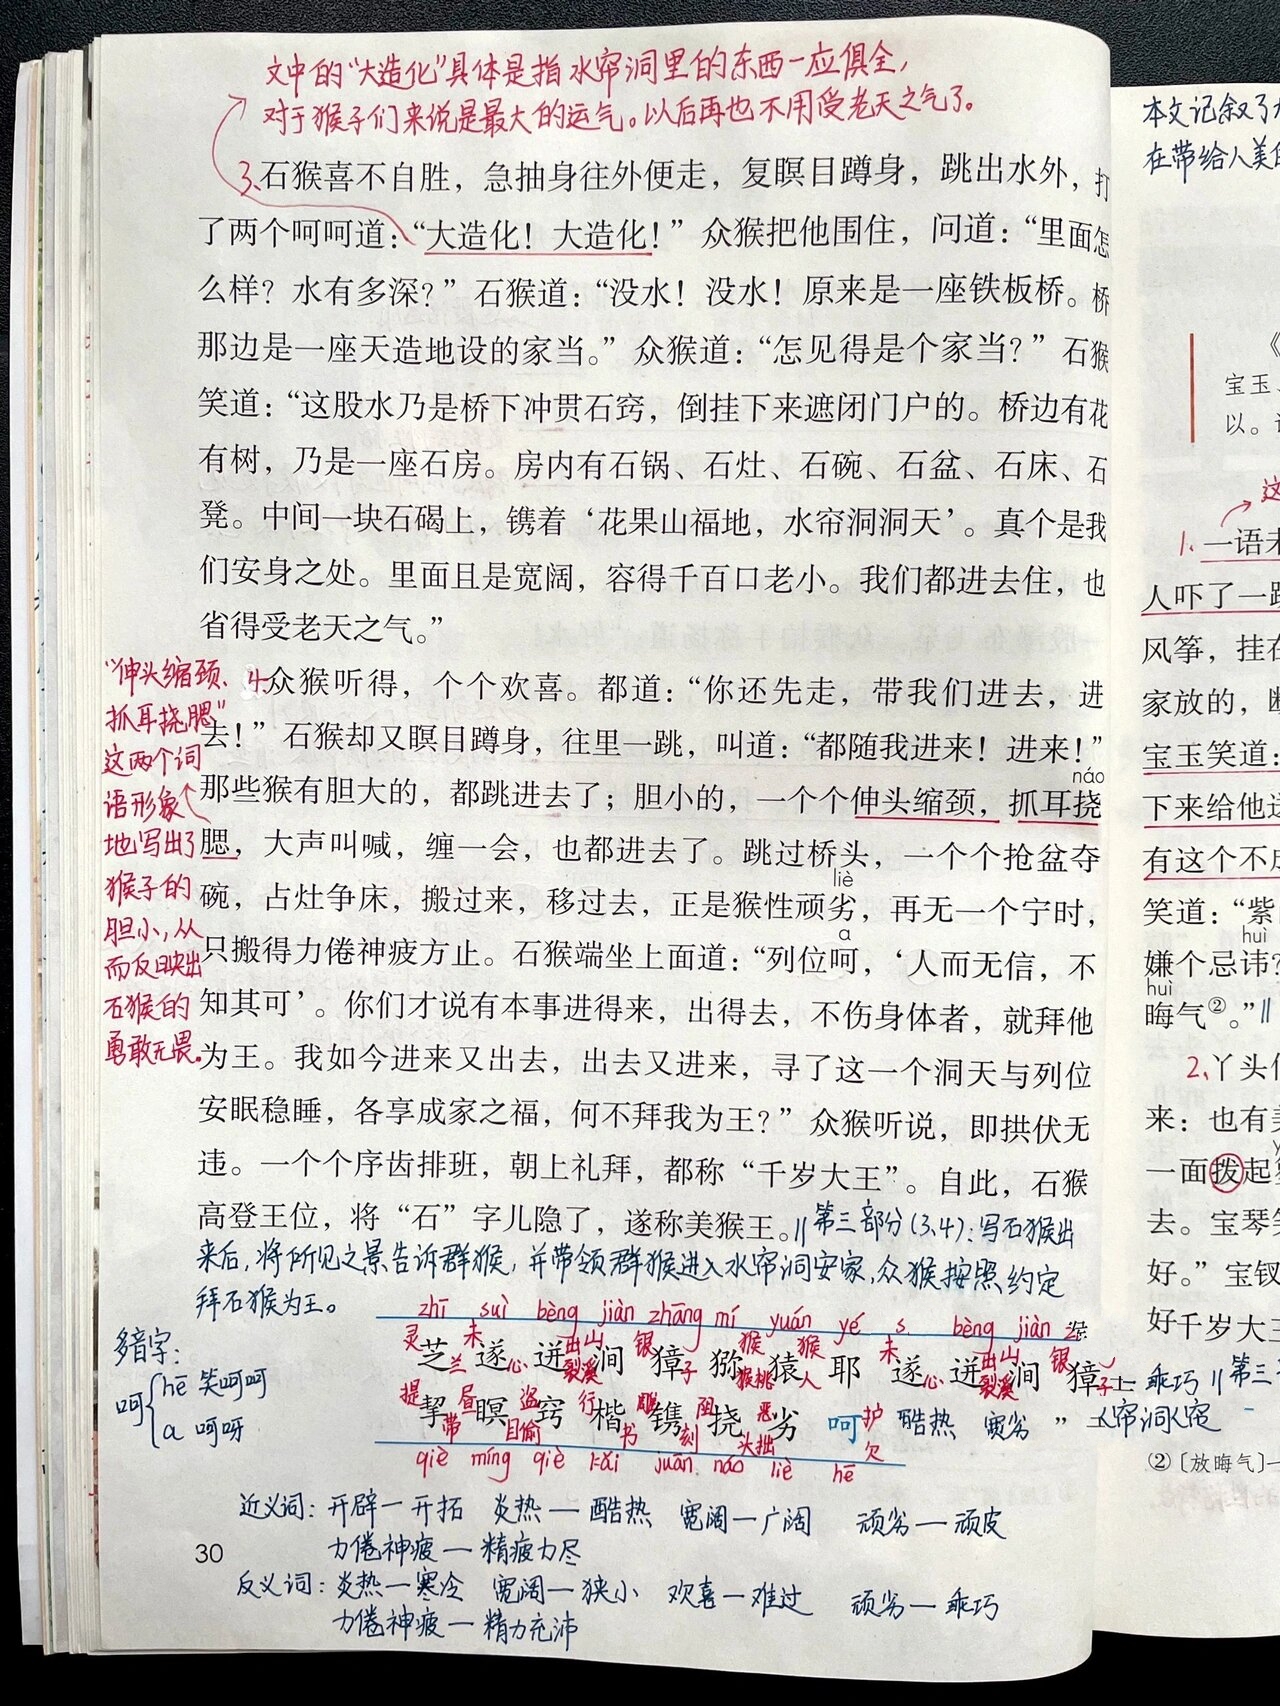 文中的“大造化”具体是指水帘洞里的东西一应俱全，
对于猴子们来说是最大的运气。以后再也不用受老天之气了。
3、石猴喜不自胜，急抽身往外便走，复瞑目蹲身，跳出水外，打
了两个呵呵道：“大造化！大造化！”众猴把他围住，问道：“里面怎
么样？水有多深？”石猴道：“没水！没水！原来是一座铁板桥。桥
那边是一座天造地设的家当。”众猴道：“怎见得是个家当？”石猴
笑道：“这股水乃是桥下冲贯石窍，倒挂下来遮闭门户的。桥边有花
有树，乃是一座石房。房内有石锅、石灶、石碗、石盆、石床、石
凳。中间一块石碣上，镌着‘花果山福地，水帘洞洞天’。真个是我
们安身之处。里面且是宽阔，容得千百口老小。我们都进去住，也
省得受老天之气。”
4、众猴听得，个个欢喜。都道：“你还先走，带我们进去，进
去！”石猴却又瞑目蹲身，往里一跳，叫道：“都随我进来！进来！”
náo
那些猴有胆大的，都跳进去了；胆小的，一个个伸头缩颈，抓耳挠
腮，大声叫喊，缠一会，也都进去了。跳过桥头，一个个抢盆夺
liè
碗，占灶争床，搬过来，移过去，正是猴性顽劣，再无一个宁时，
ɑ
只搬得力倦神疲方止。石猴端坐上面道：“列位呵，‘人而无信，不
知其可’。你们才说有本事进得来，出得去，不伤身体者，就拜他
为王。我如今进来又出去，出去又进来，寻了这一个洞天与列位
安眠稳睡，各享成家之福，何不拜我为王？”众猴听说，即拱伏无
违。一个个序齿排班，朝上礼拜，都称“千岁大王”。自此，石猴
高登王位，将“石”字儿隐了，遂称美猴王。‖第三部分(3、4)：写石猴出
来后，将所见之景告诉群猴，并带领群猴进入水帘洞安家，众猴按照约定
拜石猴为王。
“伸头缩颈、
抓耳挠腮”
这两个词
语形象
地写出了
猴子的
胆小，从
而反映出
石猴的
勇敢无畏。
多音字：
呵
hē 笑呵呵
a 呵呀
zhī suì bèng jiàn zhāng mí yuán yé s bèng jiàn
灵 未 出山 银 猴 猴 未 出山 银
芝 遂 迸 涧 獐 猕 猿 耶 遂 迸 涧 獐
兰 心 裂 溪 子 猴桃 人 心 裂 溪 子
提 昼 盗 行 雕 阻 恶 护
挈 瞑 窍 楷 镌 挠 劣 呵 酷热 顽劣
带 目 偷 书 刻 头 拙 欠
qiè míng qiè kǎi juān náo liè hē
近义词：开辟一开拓 炎热一酷热 宽阔一广阔 顽劣一顽皮
力倦神疲一精疲力尽
反义词：炎热一寒冷 宽阔一狭小 欢喜一难过 顽劣一乖巧
力倦神疲一精力充沛
30
本文记叙了
在带给人美的
《
宝玉、
以。
这
1、一语未
人吓了一跳
风筝，挂在
家放的，断
宝玉笑道：
下来给他送
有这个不成
笑道：“紫
huì
嫌个忌讳？
huì
晦气②。”‖
2、丫头们
来：也有美
一面拨起
去。宝琴笑
好。”宝钗
好千岁大王
乖巧‖第三
②〔放晦气〕